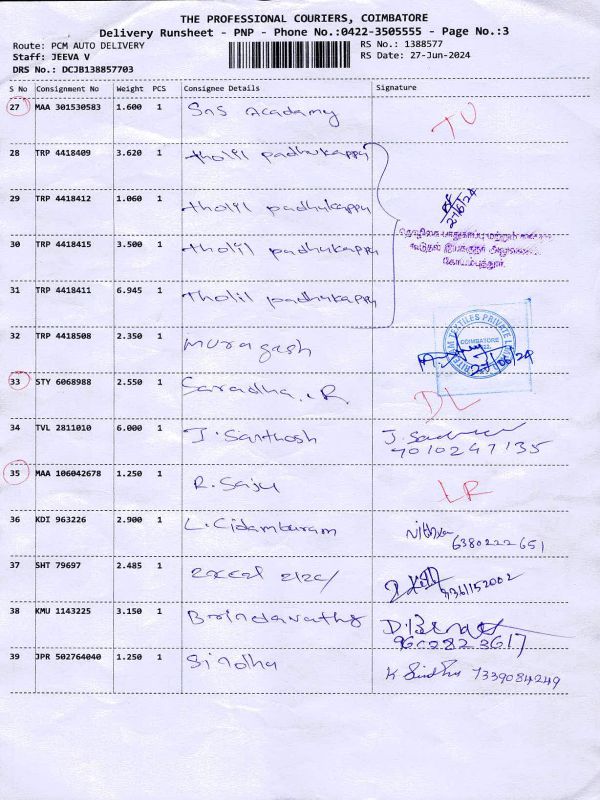 THE PROFESSIONAL COURIERS, COIMBATORE
Delivery Runsheet - PNP - Phone No.:0422-3505555 - Page No.:3
Route: PCM AUTO DELIVERY RS No.: 1388577
Staff: JEEVA V RS Date: 27-Jun-2024
DRS No.: DCJB138857703
S No Consignment No Weight PCS Consignee Details Signature
27 MAA 301530583 1.600 1 SNS Acadamy TU
28 TRP 4418409 3.620 1 Tholil padhukappu
29 TRP 4418412 1.060 1 Tholil padhukappu 27/6/24
30 TRP 4418415 3.500 1 Tholil padhukappu
கோயம்புத்தூர்.
31 TRP 4418411 6.945 1 Tholil padhukappu
32 TRP 4418508 2.350 1 Murugash COIMBATORE 27/06/24
33 STY 6068988 2.550 1 Saradha .R DL
34 TVL 2811010 6.000 1 J. Santhosh J. 7010247135
35 MAA 106042678 1.250 1 R. Saju LR
36 KDI 963226 2.900 1 L. Cidamburam Nithya 6380222651
37 SHT 79697 2.485 1 9361152002
38 KMU 1143225 3.150 1 Brindavathy
39 JPR 502764040 1.250 1 Sindhu K Sindhu 7339084249